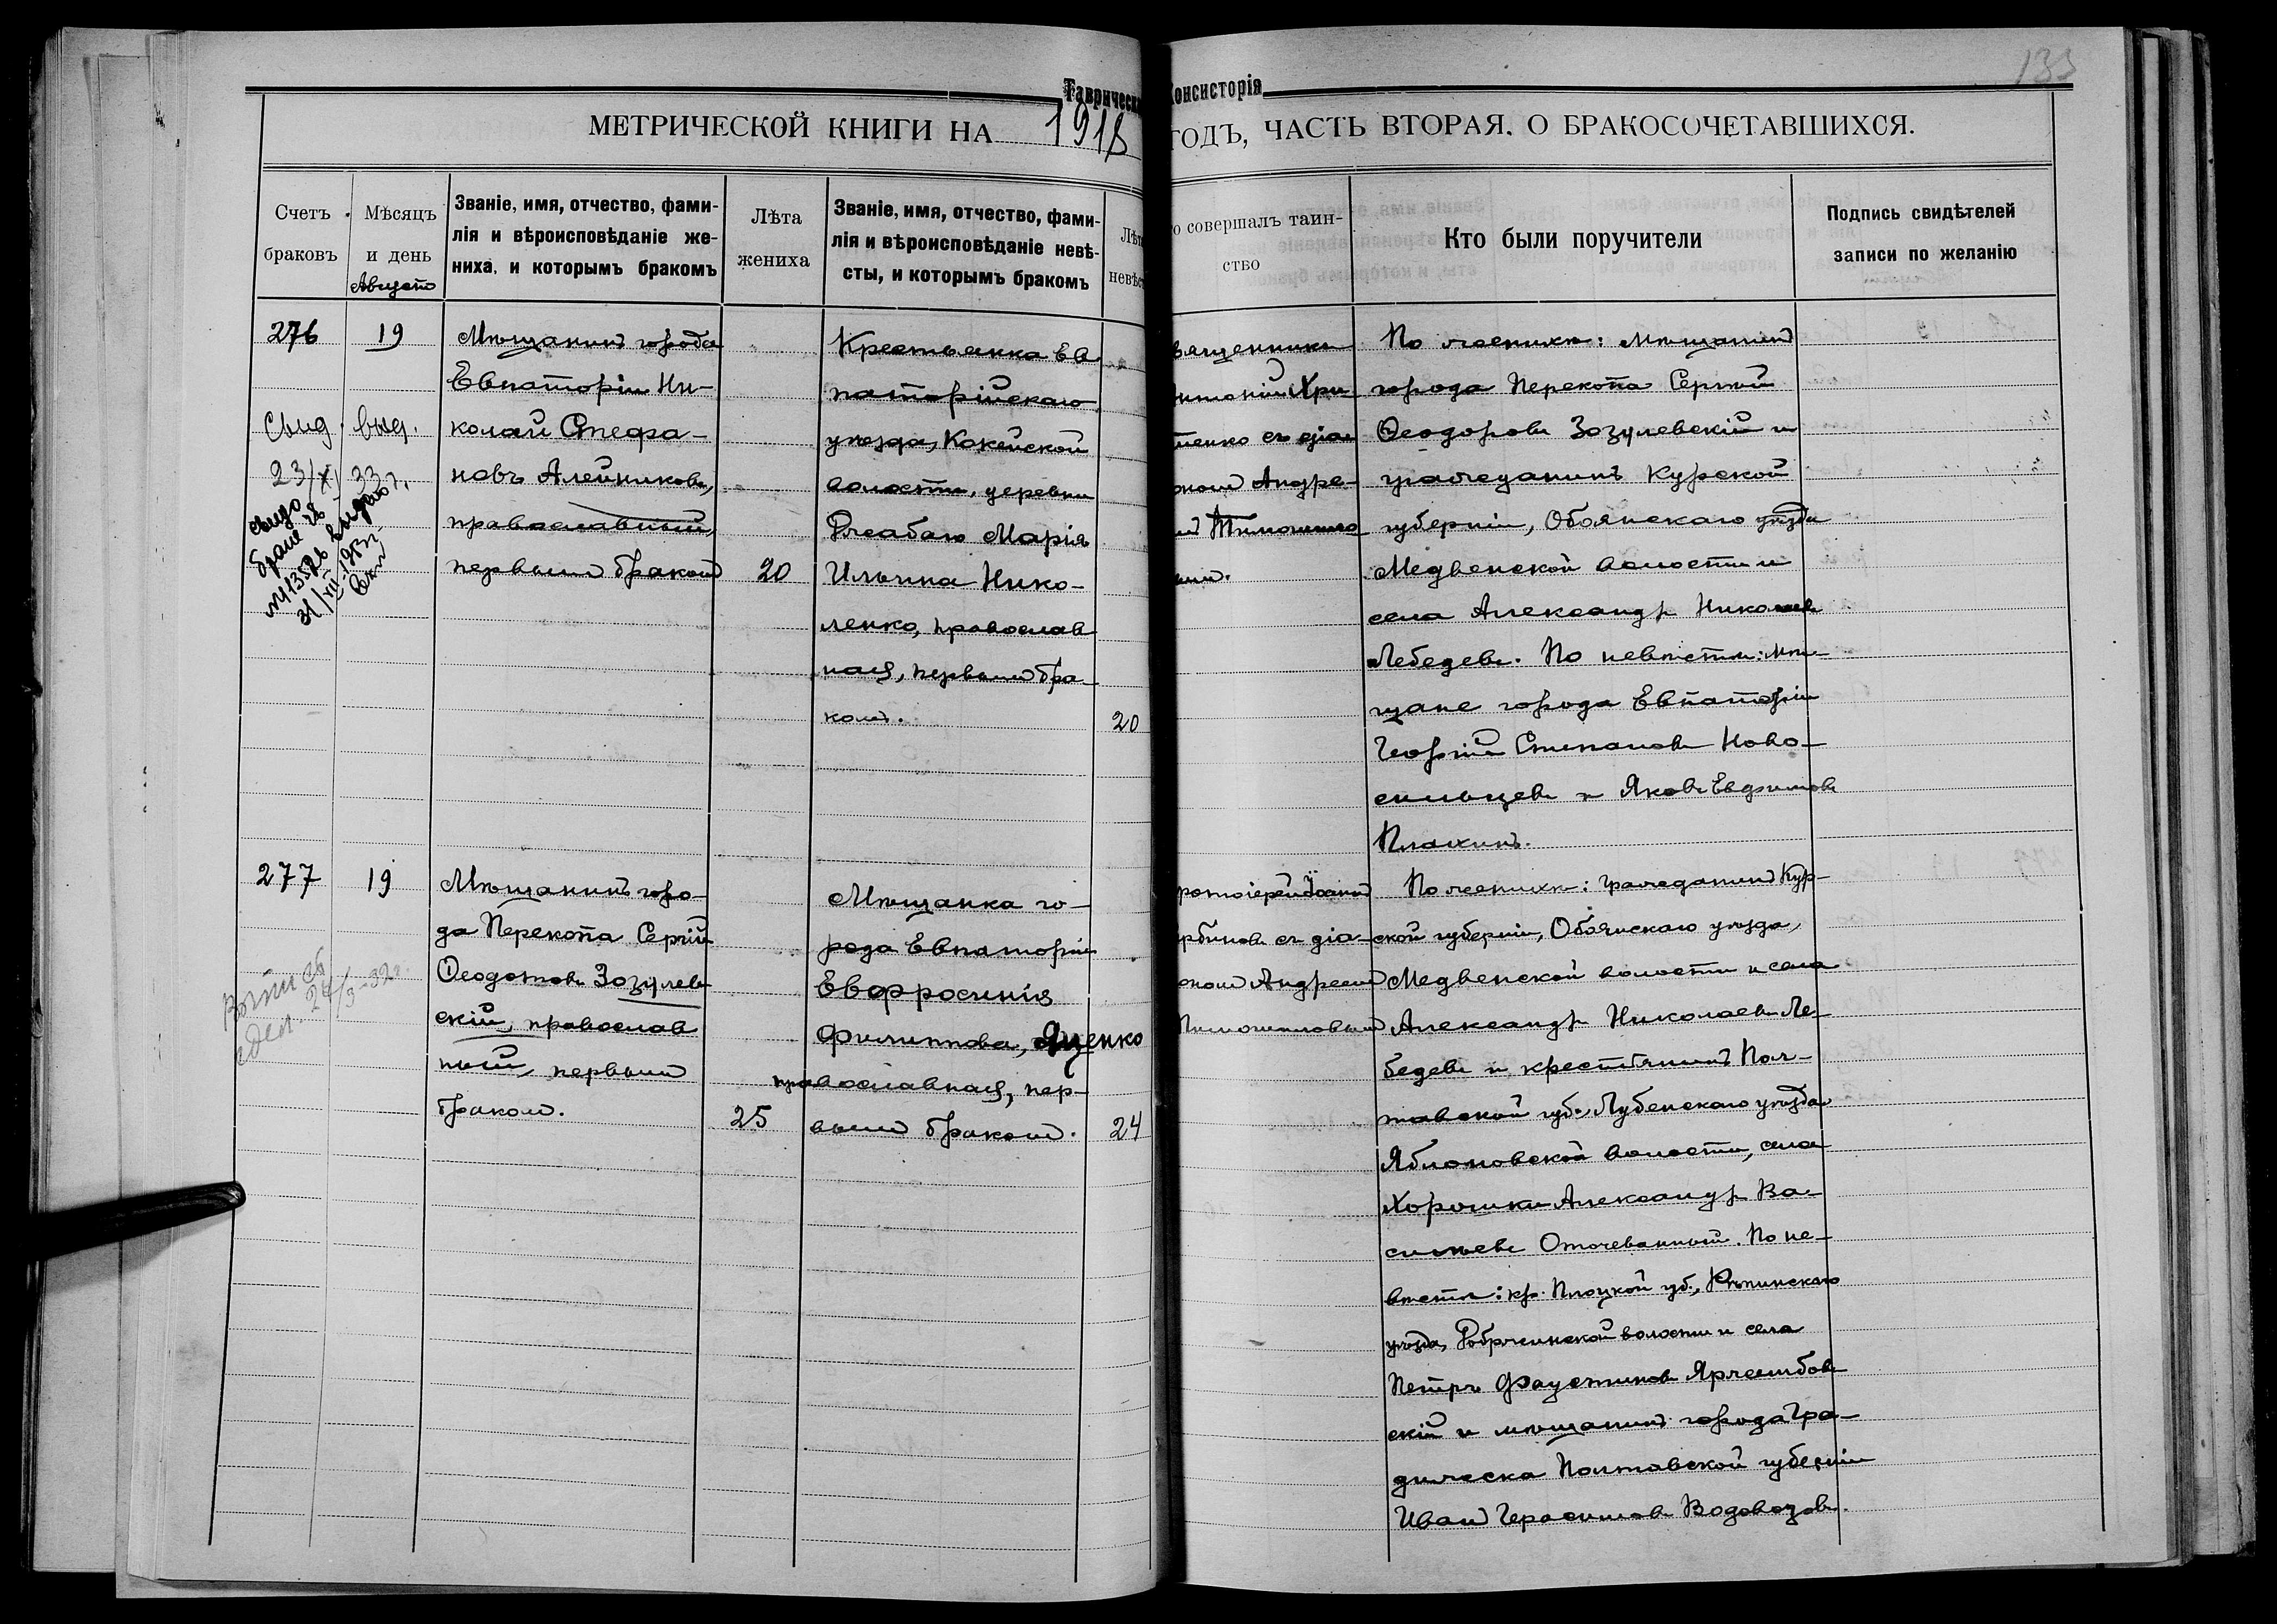 133
Таврическ
Консисторія
МЕТРИЧЕСКОЙ КНИГИ НА 1918
ГОДЪ, ЧАСТЬ ВТОРАЯ, О БРАКОСОЧЕТАВШИХСЯ.
Счетъ браковъ
Мѣсяцъ и день
Августъ
Званіе, имя, отчество, фами-
лія и вѣроисповѣданіе же-
ниха, и которымъ бракомъ
Лѣта
жениха
Званіе, имя, отчество, фами-
лія и вѣроисповѣданіе невѣ-
сты, и которымъ бракомъ
Лѣта
невѣст
о совершалъ таин-
ство
Кто были поручители
Подпись свидѣтелей
записи по желанію
276
19
Свид. выд.
23/XI 33 г.
свидо
браке
31/VII-1953г
Мѣщанинъ города
Евпаторіи Ни-
колай Стефа-
новъ Алейниковъ,
православный,
первымъ бракомъ
20
Крестьянка Ев
паторійскаго
уѣзда, Кокейской
волости, деревни
Джабаю Марія
Ильина Нико-
ленко, православ
ная, первымъ бра-
комъ.
20
вященникъ
нтоній Хри-
тенко съ діа
кономъ Андре-
Тимошенко
вым.
По женихѣ: Мѣщанинъ
города Перекопа Сергій
Ѳеодоровъ Зозулевскій и
гражданинъ Курской
губерніи, Обоянскаго уѣзда
Медвенской волости и
села Александръ Николаев
Лебедевъ. По невѣстѣ: мѣ-
щане города Евпаторіи
Георгій Степановъ Ново-
сильцевъ и Яковъ Евфимовъ
Плахинъ.
277
19
Выпись
24/3-32г.
Мѣщанинъ горо-
да Перекопа Сергій
Ѳеодотовъ Зозулев
скій, православ
ный, первымъ
бракомъ.
25
Мѣщанка го-
рода Евпаторіи
Евфросинія
Филиппова, Яценко
православная, пер-
вымъ бракомъ.
24
ротоіерей Іоаннъ
рбиновъ съ діа-
кономъ Андреемъ
Тимошенковымъ
По женихѣ: гражданинъ Кур-
ской губерніи, Обоянскаго уѣзда,
Медвенской волости и села
Александръ Николаевъ Ле-
бедевъ и крестьянинъ Пол-
тавской губ., Лубенскаго уѣзда
Яблоновской волости, села
Хорошки Александръ Ва-
сильевъ Оточеванный. По не-
вѣстѣ: кр. Плоцкой губ., Рыпинскаго
уѣзда, волости и села
Петръ Фаустиновъ Яржембов
скій и мѣщанинъ города Гра-
дижска Полтавской губерніи
Иванъ Герасимовъ Водовозовъ.